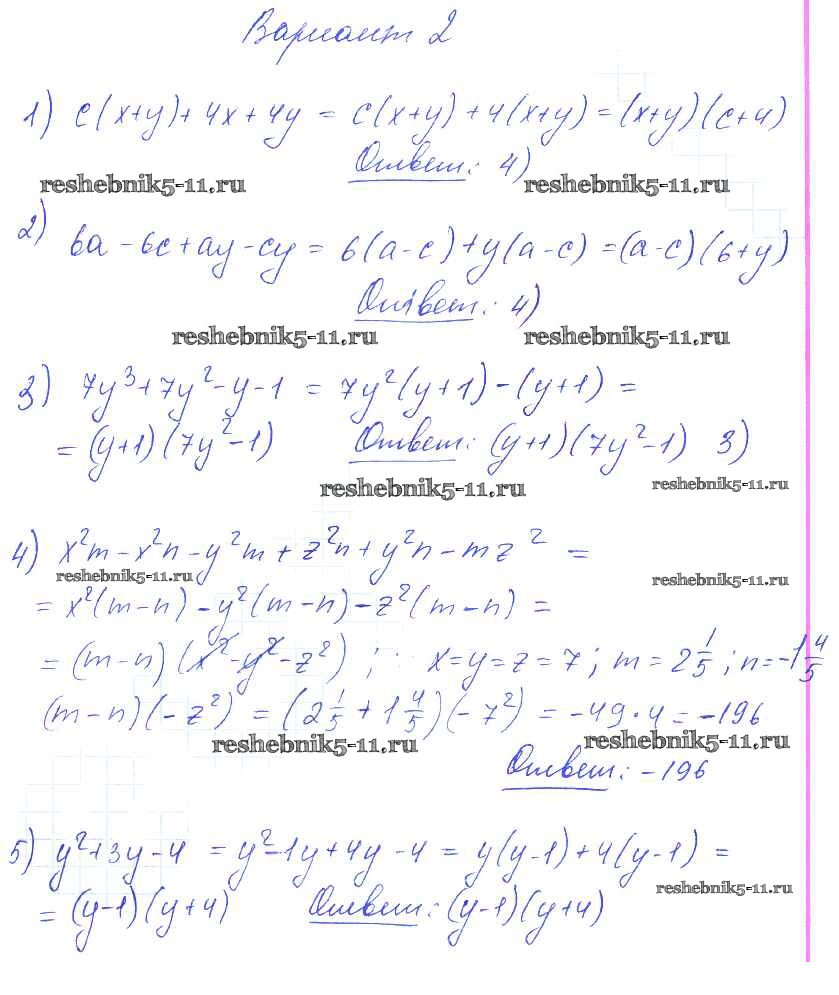 Вариант 2
1) c(x+y)+4x+4y = c(x+y)+4(x+y)=(x+y)(c+4)
Ответ: 4)
reshebnik5-11.ru reshebnik5-11.ru
2) 6a-6c+ay-cy = 6(a-c)+y(a-c)=(a-c)(6+y)
Ответ: 4)
reshebnik5-11.ru reshebnik5-11.ru
3) 7y³+7y²-y-1 = 7y²(y+1)-(y+1) =
= (y+1)(7y²-1) Ответ: (y+1)(7y²-1) 3)
reshebnik5-11.ru reshebnik5-11.ru
4) x²m-x²n-y²m+z²n+y²n-mz² =
reshebnik5-11.ru reshebnik5-11.ru
= x²(m-n)-y²(m-n)-z²(m-n) =
= (m-n)(x²-y²-z²); x=y=z=7; m=2 1/5; n=-1 4/5
(m-n)(-z²) = (2 1/5 + 1 4/5)(-7²) = -49·4 = -196
reshebnik5-11.ru reshebnik5-11.ru
Ответ: -196
5) y²+3y-4 = y²-1y+4y-4 = y(y-1)+4(y-1) =
reshebnik5-11.ru
= (y-1)(y+4) Ответ: (y-1)(y+4)